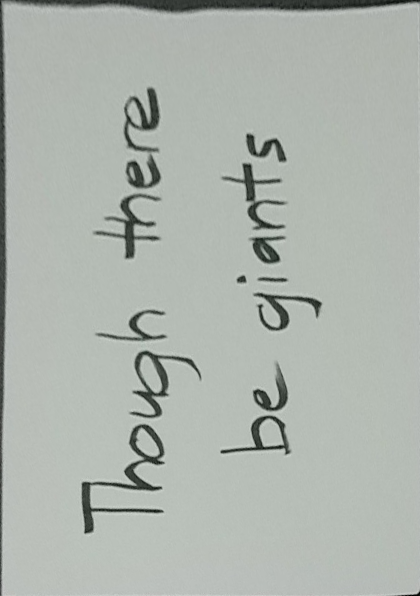 Though there
be giants